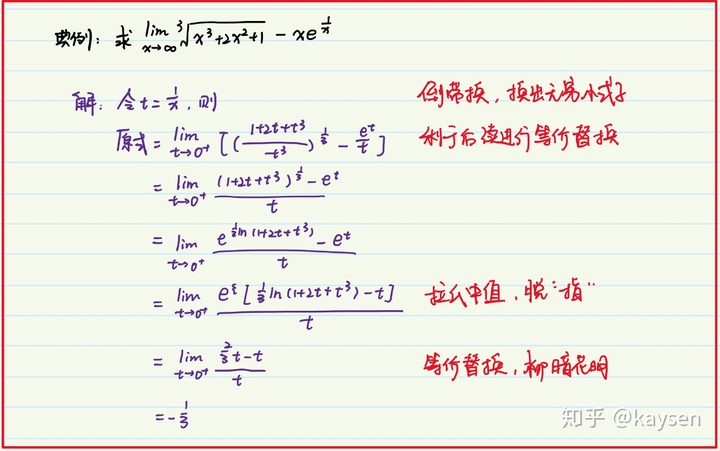 典例：求 lim x→∞ ³√(x³+2x²+1) - xe^(1/x)
解：令t=1/x，则
倒带换，换出无穷小式子
原式 = lim t→0⁺ [((1+2t+t³)/t³)^(1/3) - e^t/t]
利于后续进行等价替换
= lim t→0⁺ ((1+2t+t³)^(1/3) - e^t)/t
= lim t→0⁺ (e^(1/3 ln(1+2t+t³)) - e^t)/t
= lim t→0⁺ e^ξ[1/3 ln(1+2t+t³) - t]/t
拉氏中值，脱“指”
= lim t→0⁺ (2/3 t - t)/t
等价替换，柳暗花明
= -1/3
知乎 @kaysen